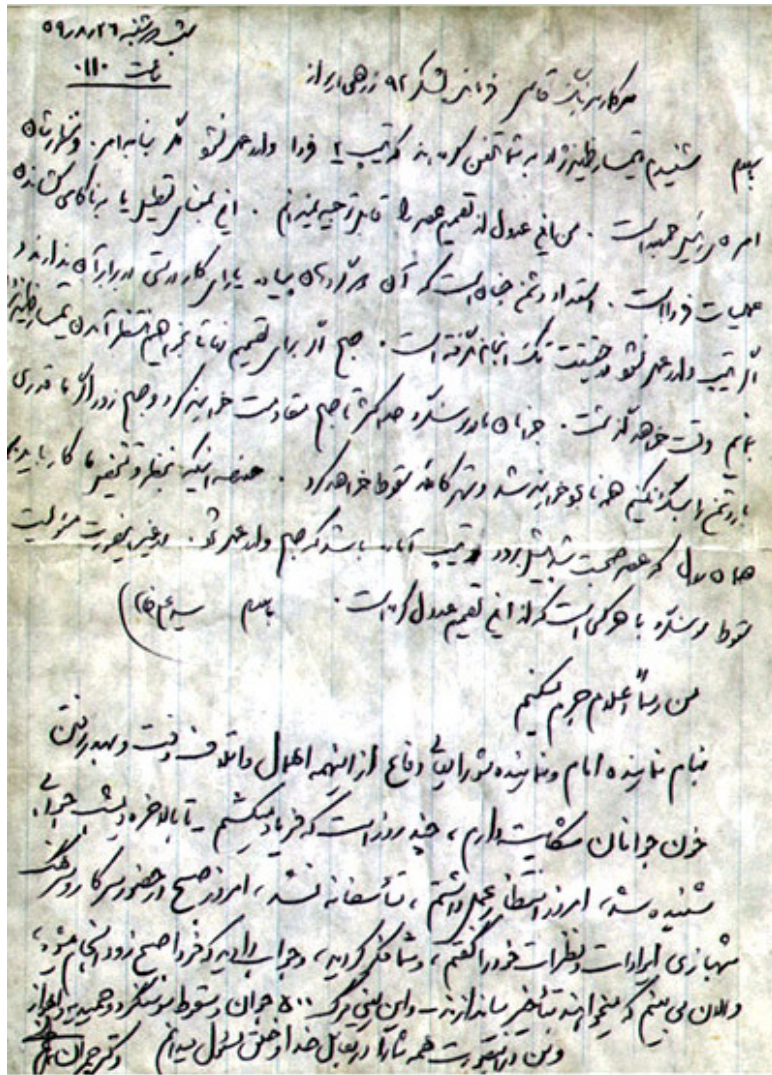 شب دوشنبه ۵۹٫۸٫۲۶
ساعت ۰۱۱۰
سرکار سرهنگ قاسمی فرمانده لشکر ۹۲ زرهی اهواز
با سلام شنیدم تیمسار ظهیرنژاد به شما تلفن کرده‌اند که تیپ ۲ فردا وارد عمل نشود مگر بنا به امر. و منظورشان
امر آقای رئیس جمهور است. من این عدول از تصمیم عصر را قابل توجیه نمیدانم. این بمعنای تعطیل یا به ناکامی کشاندن
عملیات فردا است. استعداد دشمن چنان است که آن گردانهای پیاده یارای کار درستی در برابر آن ندارند و
اگر تیپ وارد عمل نشود در حقیقت تک انجام نگرفته است. صبح اگر برای تصمیم نهائی بخواهیم منتظر آمدن تیمسار ظهیرنژاد
بمانیم وقت خواهد گذشت. جوانان ما در سوسنگرد حداکثر تا صبح مقاومت خواهند کرد و صبح زود اگر ما قدری
بار دشمن را سبک نکنیم همه نابود خواهند شد و شهر کاملاً سقوط خواهد کرد. خلاصه اینکه بنظر و تشخیص ما کار باید به
همان روال که عصر صحبت شد پیش برود و تیپ آماده باشد که صبح وارد عمل شود. در غیر اینصورت مسئولیت
سقوط سوسنگرد با هر کسی است که از این تصمیم عدول کرده است. با سلام سید علی خامنه‌ای
من رسماً اعلام جرم میکنیم
بنام نماینده امام و نماینده شورایعالی دفاع از اینهمه اهمال و اتلاف وقت و بهدر رفتن
خون جوانان شکایت دارم، چند روز است که فریاد میکشیم تا بالاخره دیشب جوابی
شنیده شد، امروز انتظار عمل داشتم، متأسفانه نشد، امروز صبح در حضور سرکار سرهنگ
شهبازی ایرادات و نظرات خود را گفتم، و شما فکر کردید، و جواب دادید که فردا صبح زود انجام میشود،
و الان می بینم که میخواهند بتأخیر بیاندازند و این یعنی مرگ ۵۰۰ جوان و سقوط سوسنگرد و حمیدیه و اهواز
و من در اینصورت همه شما را در مقابل خدا و خلق مسئول میدانم دکتر چمران